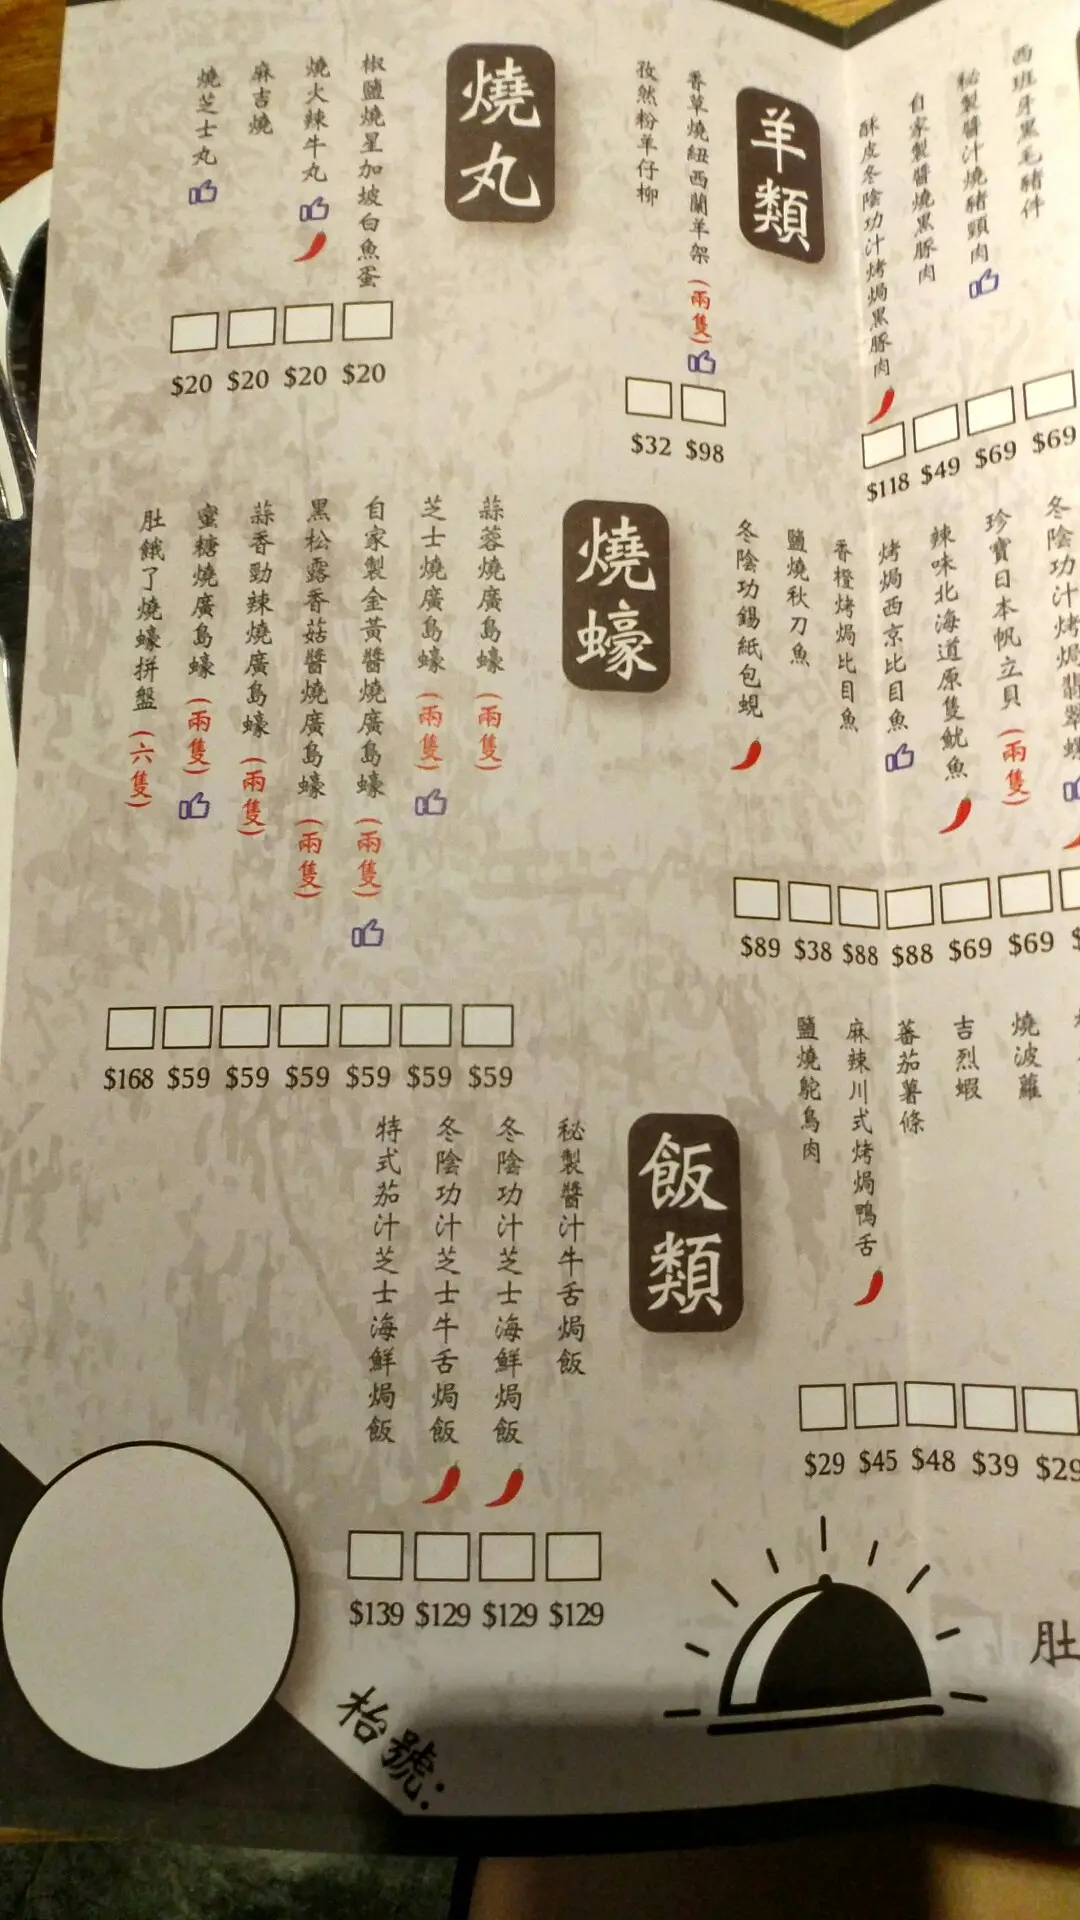 西班牙黑毛豬件
$69
秘製醬汁燒豬頸肉
$69
自家製醬燒黑豚肉
$49
酥皮冬陰功汁烤焗黑豚肉
$118
羊類
香草燒紐西蘭羊架(兩隻)
$98
孜然粉羊仔柳
$32
燒丸
椒鹽燒星加坡白魚蛋
$20
燒火辣牛丸
$20
麻吉燒
$20
燒芝士丸
$20
冬陰功汁烤焗翡翠螺
珍寶日本帆立貝(兩隻)
$69
辣味北海道原隻魷魚
$69
烤焗西京比目魚
$88
香橙烤焗比目魚
$88
鹽燒秋刀魚
$38
冬陰功錫紙包蜆
$89
燒蠔
蒜蓉燒廣島蠔(兩隻)
$59
芝士燒廣島蠔(兩隻)
$59
自家製金黃醬燒廣島蠔(兩隻)
$59
黑松露香菇醬燒廣島蠔(兩隻)
$59
蒜香勁辣燒廣島蠔(兩隻)
$59
蜜糖燒廣島蠔(兩隻)
$59
肚餓了燒蠔拼盤(六隻)
$168
燒波蘿
$29
吉烈蝦
$39
蕃茄薯條
$48
麻辣川式烤焗鴨舌
$45
鹽燒鴕鳥肉
$29
飯類
秘製醬汁牛舌焗飯
$129
冬陰功汁芝士海鮮焗飯
$129
冬陰功汁芝士牛舌焗飯
$129
特式茄汁芝士海鮮焗飯
$139
肚
枱號: